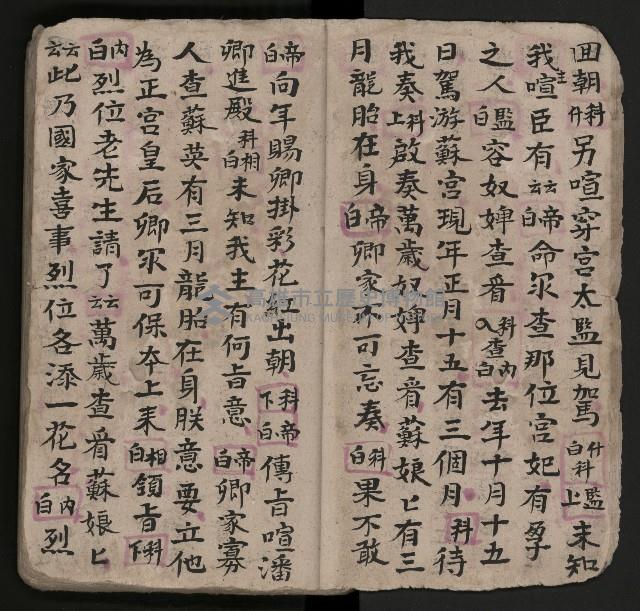 回朝科介另喧穿宮太監見加駕介白科監上未知
我主喧臣有云云帝白命尔查那位宮妃有孕
之人監白容奴婢查看科查入內白去年十月十五
日駕游蘇宮現年正月十五有三個月科待
我奏科上啟奏萬歲奴婢查看蘇娘匕有三
月龍胎在身帝白卿家不可忘奏科白果不敢
帝白向年賜卿掛彩花出朝科下帝白傳旨喧潘
卿進殿科相白未知我主有何旨意帝白卿家寡
人查蘇英有三月龍胎在身朕意要立他
為正宮皇后卿尔可保夲上來相白領旨科下
內白烈位老先生請了云云萬歲查看蘇娘匕
云云此乃國家喜事烈位各添一花名內白烈
高雄市立歷史博物館
KAOHSIUNG MUSEUM OF HISTORY